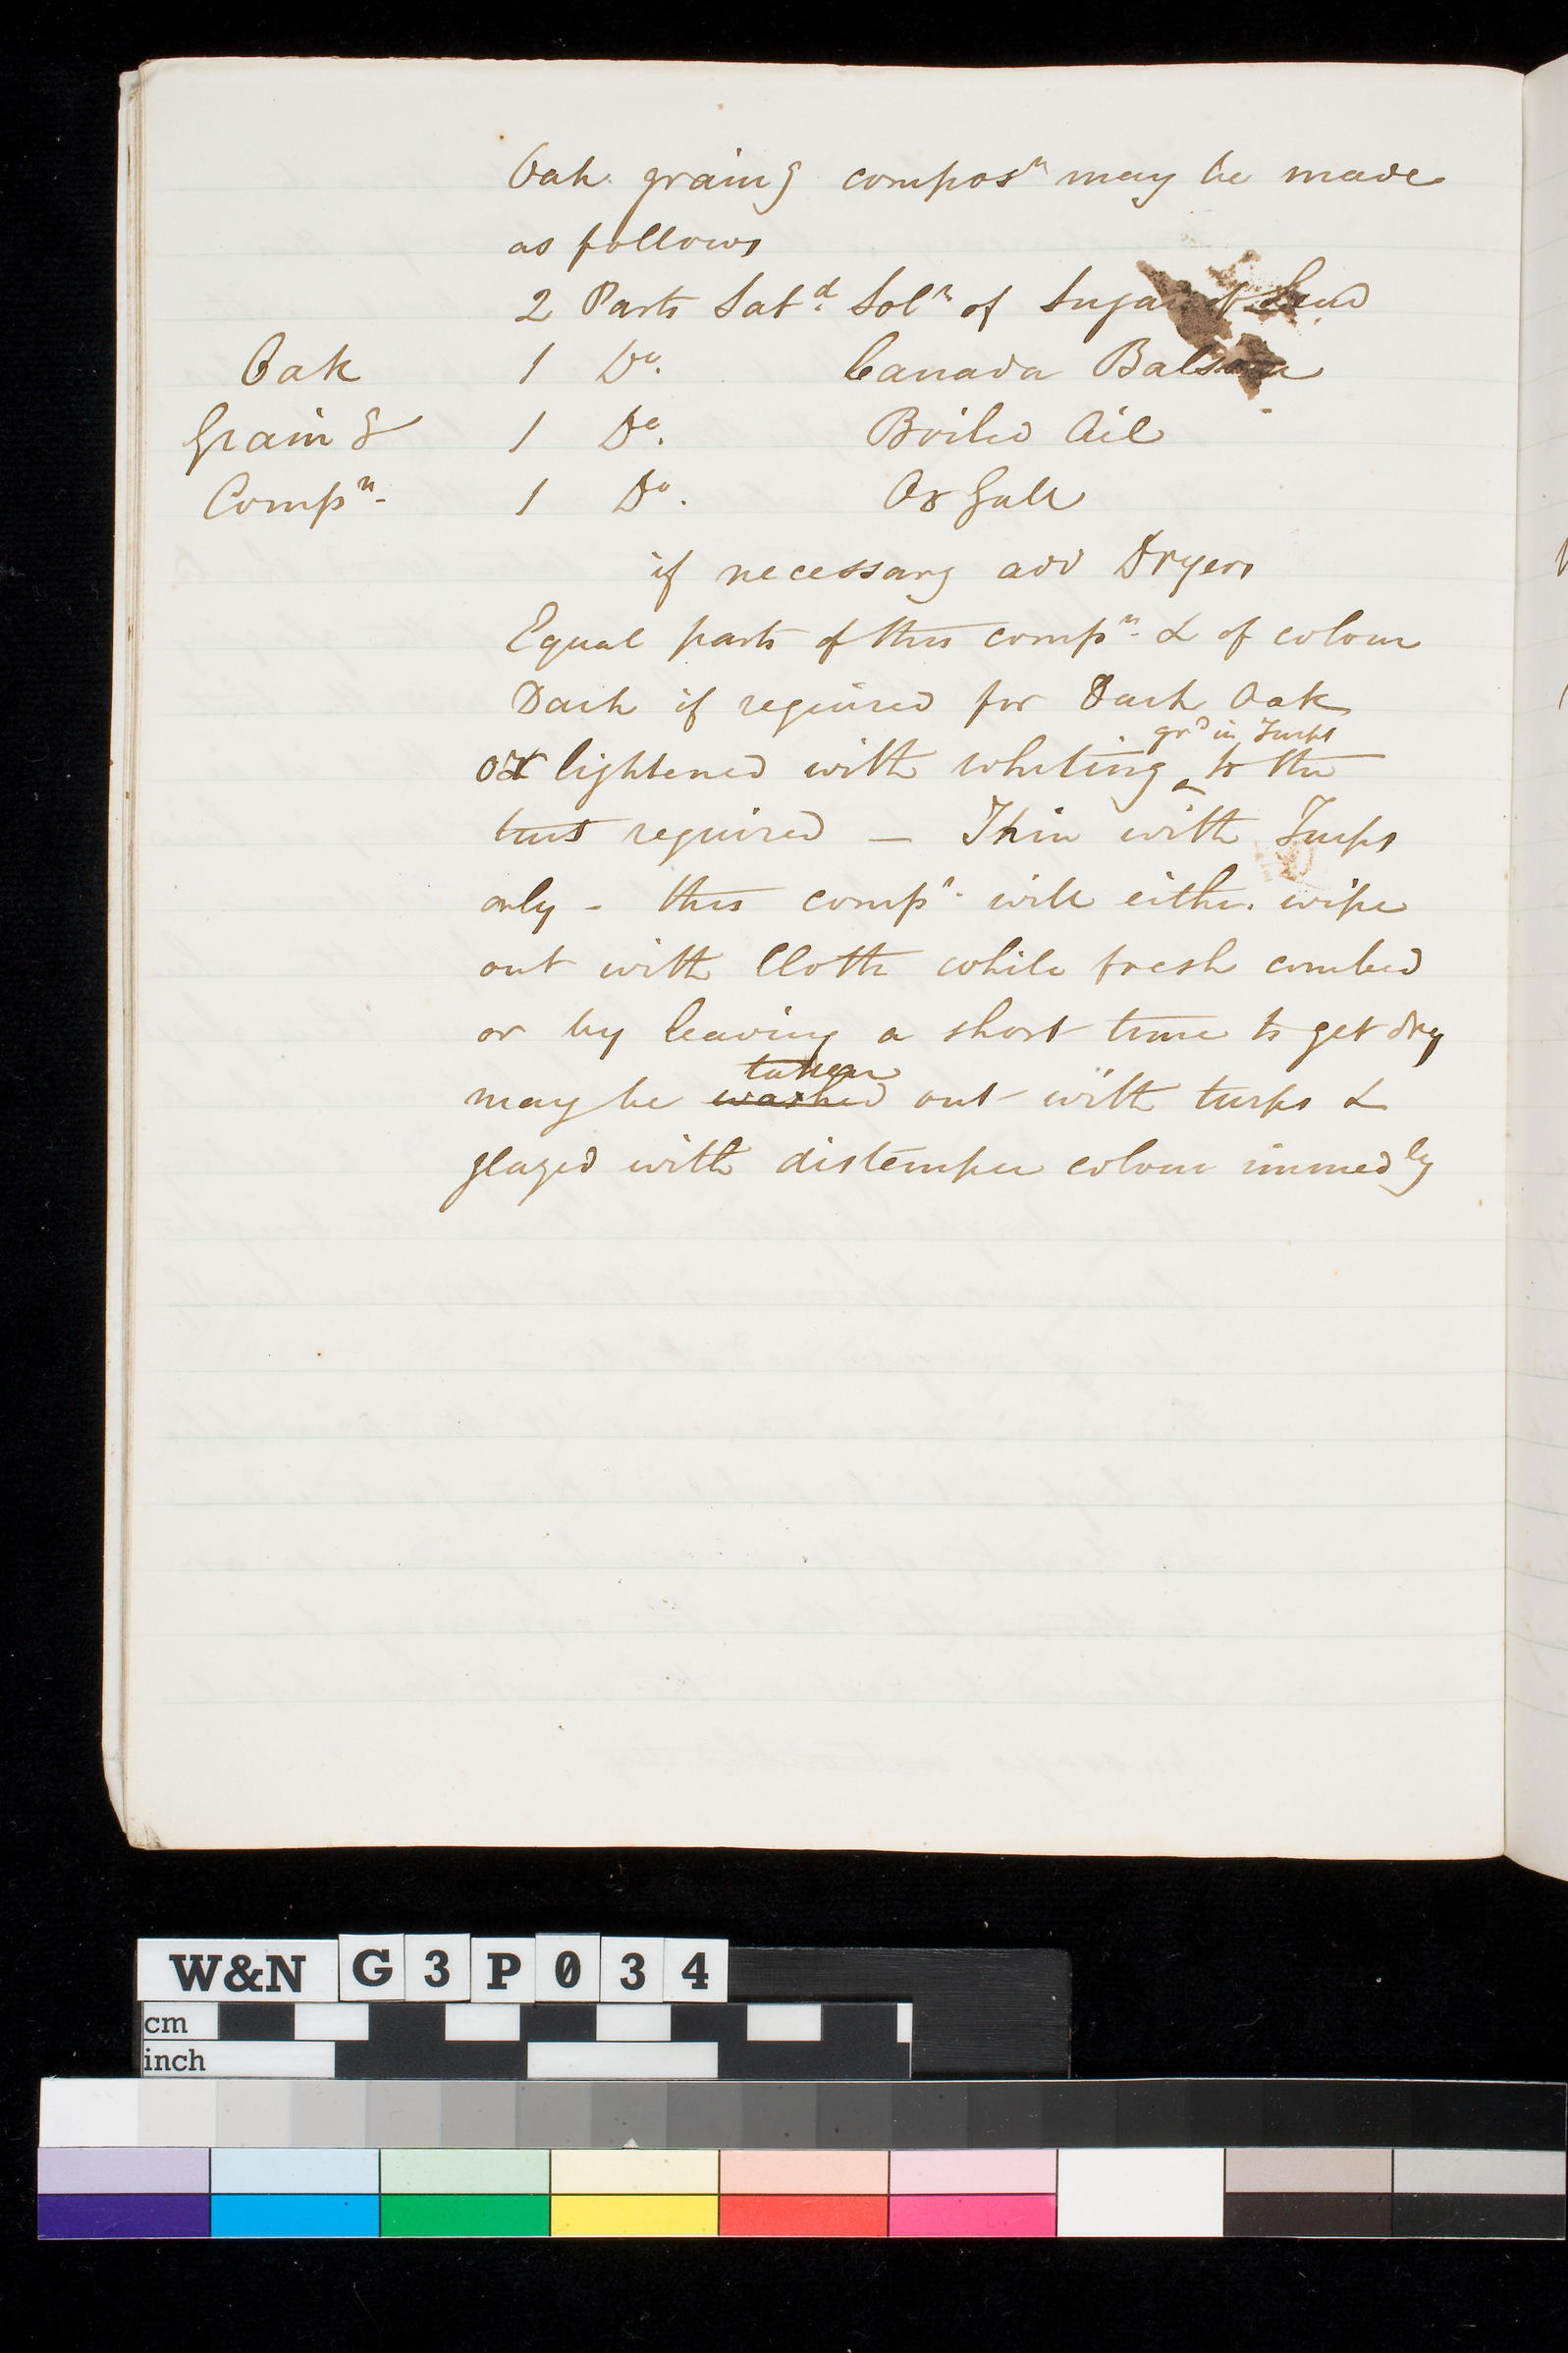 Oak graing composn may be made
as follows
2 Parts Satd. Soln of Sugar of Lead
Oak 1 Do. Canada Balsam
Graing 1 Do. Boiled Oil
Compn. 1 Do. Ox Gall
if necessary add Dryers
Equal parts of this compn. & of colour
Dark if required for Dark Oak
or lightened with whiting grd in Turps to the
tint required — Thin with Turps
only - this compn. will either wipe
out with Cloth while fresh combed
or by leaving a short time to get dry
taken
may be washed out with turps &
glazed with distemper colour immedly
W&N G3P034
cm
inch